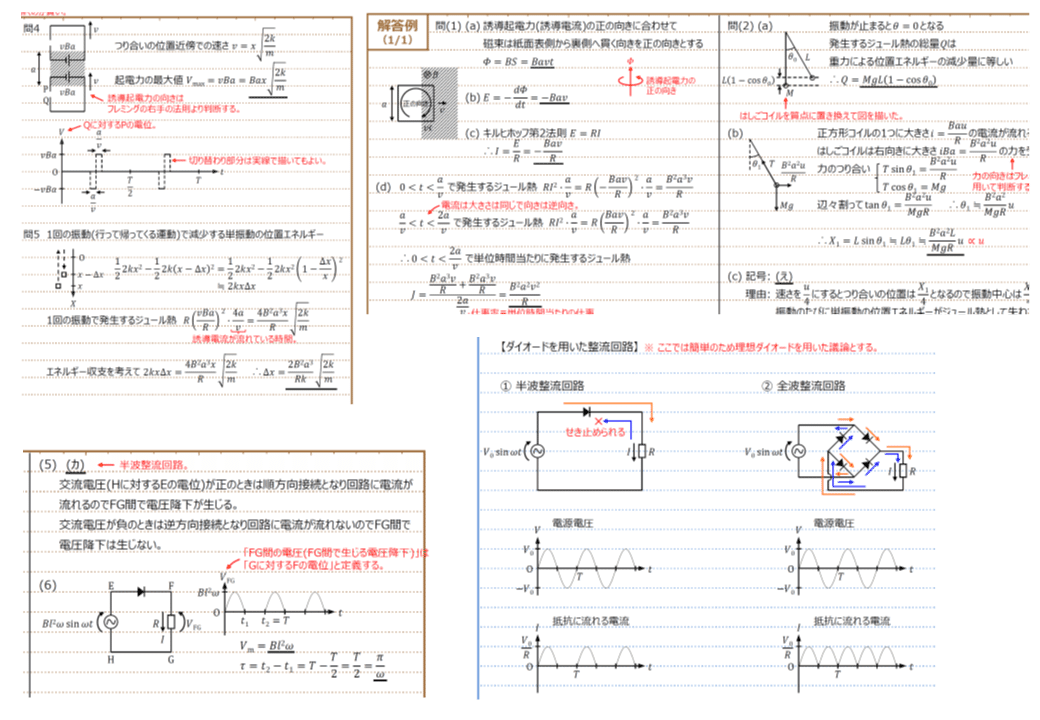 問4
vBa
v
vBa
v
a
P
Q
つり合いの位置近傍での速さ v = x√(2k/m)
起電力の最大値 V_max = vBa = Bax√(2k/m)
誘導起電力の向きは
フレミングの右手の法則より判断する。
Qに対するPの電位。
V
a/v
vBa
O
−vBa
a/v
T/2
T
t
切り替わり部分は実線で描いてもよい。
問5 1回の振動(行って帰ってくる運動)で減少する単振動の位置エネルギー
O
x − Δx
x
X
1/2 2kx² − 1/2 2k(x − Δx)² = 1/2 2kx² − 1/2 2kx²(1 − Δx/x)²
≒ 2kxΔx
1回の振動で発生するジュール熱 R(vBa/R)² · 4a/v = 4B²a³x/R √(2k/m)
誘導電流が流れている時間。
エネルギー収支を考えて 2kxΔx = 4B²a³x/R √(2k/m) ∴ Δx = 2B²a³/Rk √(2k/m)
解答例
(1/1)
問(1) (a) 誘導起電力(誘導電流)の正の向きに合わせて
磁束は紙面表側から裏側へ貫く向きを正の向きとする
Φ = BS = Bavt
Φ
誘導起電力の
正の向き
⊗B
a
正の向き
v
vt
(b) E = − dΦ/dt = −Bav
(c) キルヒホッフ第2法則 E = RI
∴ I = E/R = − Bav/R
(d) 0 < t < a/v で発生するジュール熱 RI² · a/v = R(− Bav/R)² · a/v = B²a³v/R
電流は大きさは同じで向きは逆向き。
a/v < t < 2a/v で発生するジュール熱 RI² · a/v = R(Bav/R)² · a/v = B²a³v/R
∴ 0 < t < 2a/v で単位時間当たりに発生するジュール熱
J = (B²a³v/R + B²a³v/R)/(2a/v) = B²a²v²/R
仕事率=単位時間当たりの仕事
問(2) (a)
振動が止まるとθ = 0となる
発生するジュール熱の総量Qは
重力による位置エネルギーの減少量に等しい
∴ Q = MgL(1 − cos θ₀)
θ₀
L
L(1 − cos θ₀)
M
はしごコイルを質点に置き換えて図を描いた。
(b)
正方形コイルの1つに大きさ i = Bau/R の電流が流れ
はしごコイルは右向きに大きさ iBa = B²a²u/R の力を
θ₁
T
B²a²u/R
Mg
力のつり合い
T sin θ₁ = B²a²u/R
T cos θ₁ = Mg
力の向きはフレ
用いて判断する
辺々割って tan θ₁ = B²a²u/MgR ∴ θ₁ ≒ B²a²/MgR u
∴ X₁ = L sin θ₁ ≒ Lθ₁ ≒ B²a²L/MgR u ∝ u
(c) 記号: (え)
理由: 速さを u/4 にするとつり合いの位置は X₁/4 となるので振動中心は
振動のたびに単振動の位置エネルギーがジュール熱として失わ
(5) (カ) ← 半波整流回路。
交流電圧(Hに対するEの電位)が正のときは順方向接続となり回路に電流が
流れるのでFG間で電圧降下が生じる。
交流電圧が負のときは逆方向接続となり回路に電流が流れないのでFG間で
電圧降下は生じない。
「FG間の電圧(FG間で生じる電圧降下)」は
「Gに対するFの電位」と定義する。
(6)
E
F
Bl²ω sin ωt
R
I
V_FG
H
G
V_FG
Bl²ω
O
t₁
t₂ = T
t
V_m = Bl²ω
τ = t₂ − t₁ = T − T/2 = T/2 = π/ω
【ダイオードを用いた整流回路】※ ここでは簡単のため理想ダイオードを用いた議論とする。
① 半波整流回路
② 全波整流回路
せき止められる
V₀ sin ωt
I
R
V₀ sin ωt
I
R
電源電圧
V
V₀
O
−V₀
T
t
電源電圧
V
V₀
O
−V₀
T
t
抵抗に流れる電流
I
V₀/R
O
T
t
抵抗に流れる電流
I
V₀/R
O
T
t